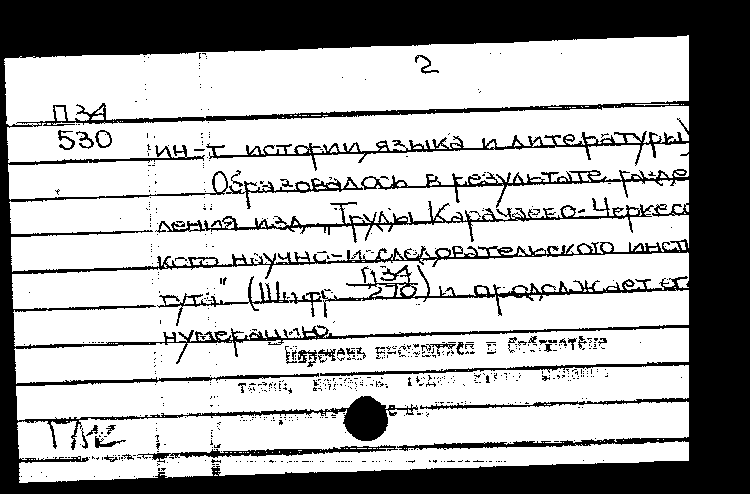 2
П34
530
ин-т истории, языка и литературы)
Образовалось в результате разде
ления изд. „Труды Карачаево-Черкесс
кого научно-исследовательского инсти
тута" (Шифр П134/270) и продолжает его
нумерацию.
Перечень имеющихся в библиотеке
томов,